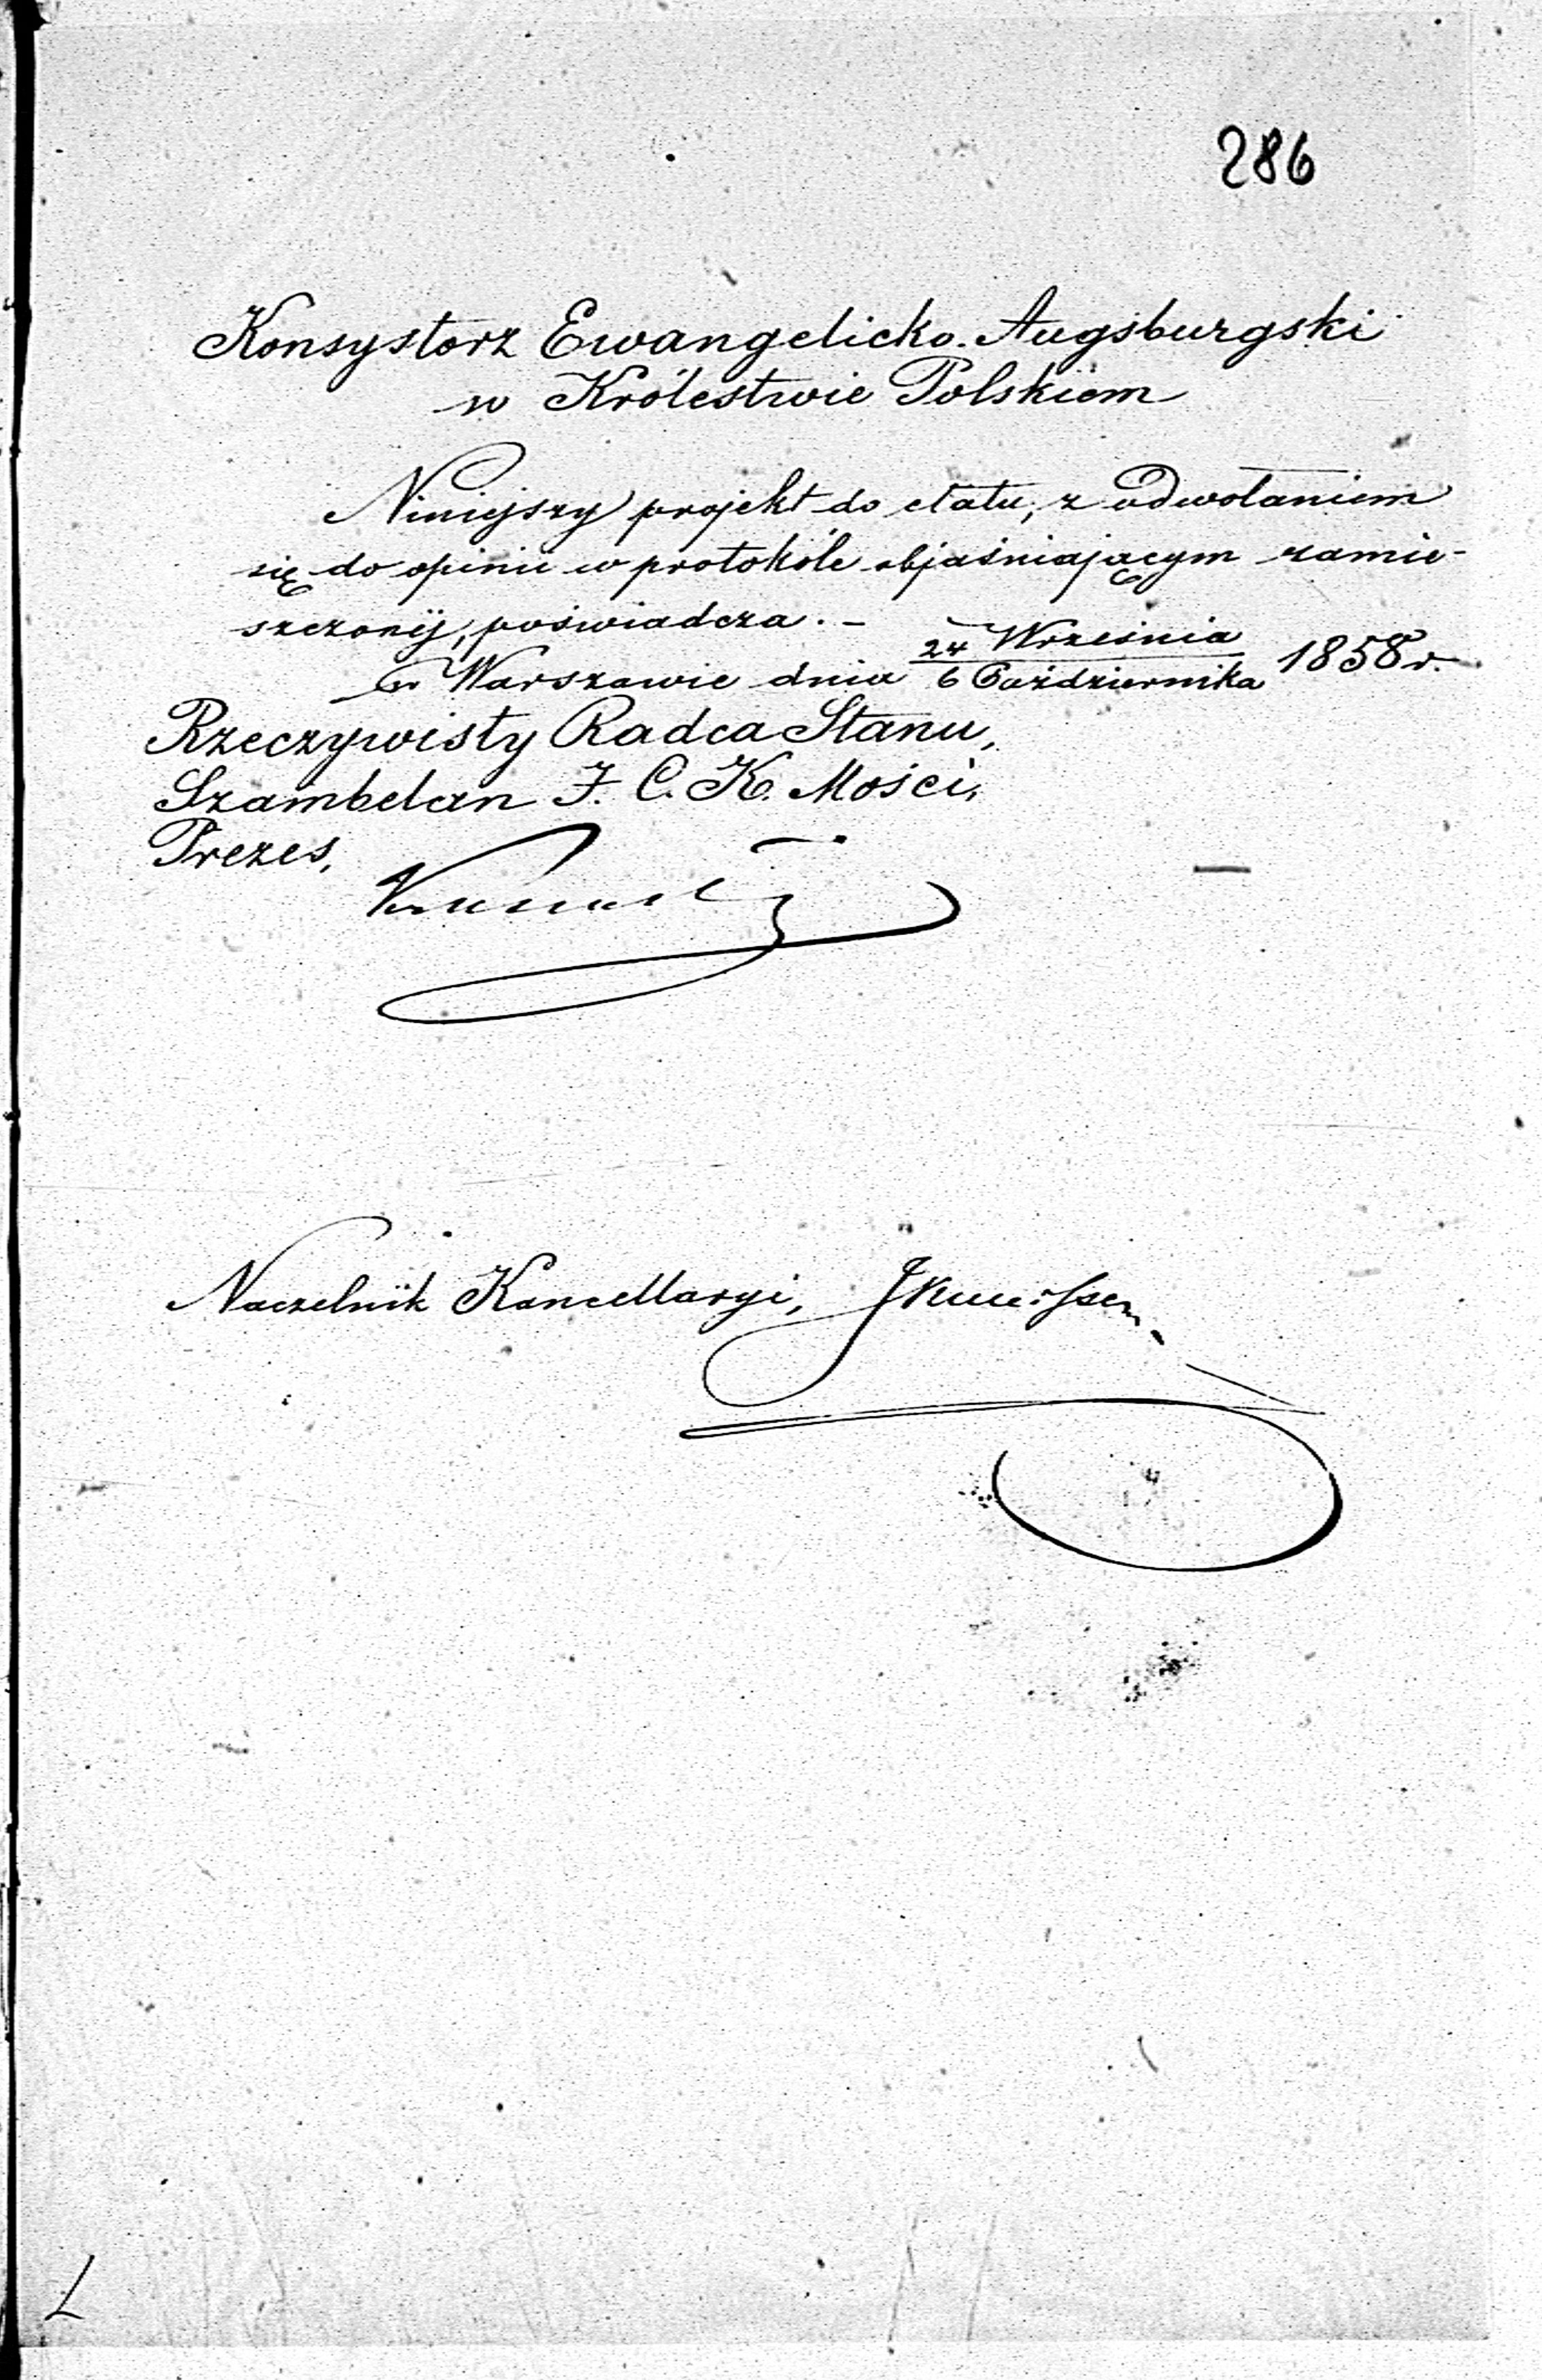 286
Konsystorz Ewangelicko-Augsburgski
w Królestwie Polskiem
Niniejszy projekt do etatu, z odwołaniem
się do opinii w protokóle objaśniającym zamie-
szczonéj, poświadcza. –
w Warszawie dnia 24 Września / 6 Października 1858 r.
Rzeczywisty Radca Stanu,
Szambelan J. C. K. Mości,
Prezes,
Naczelnik Kancellaryi,